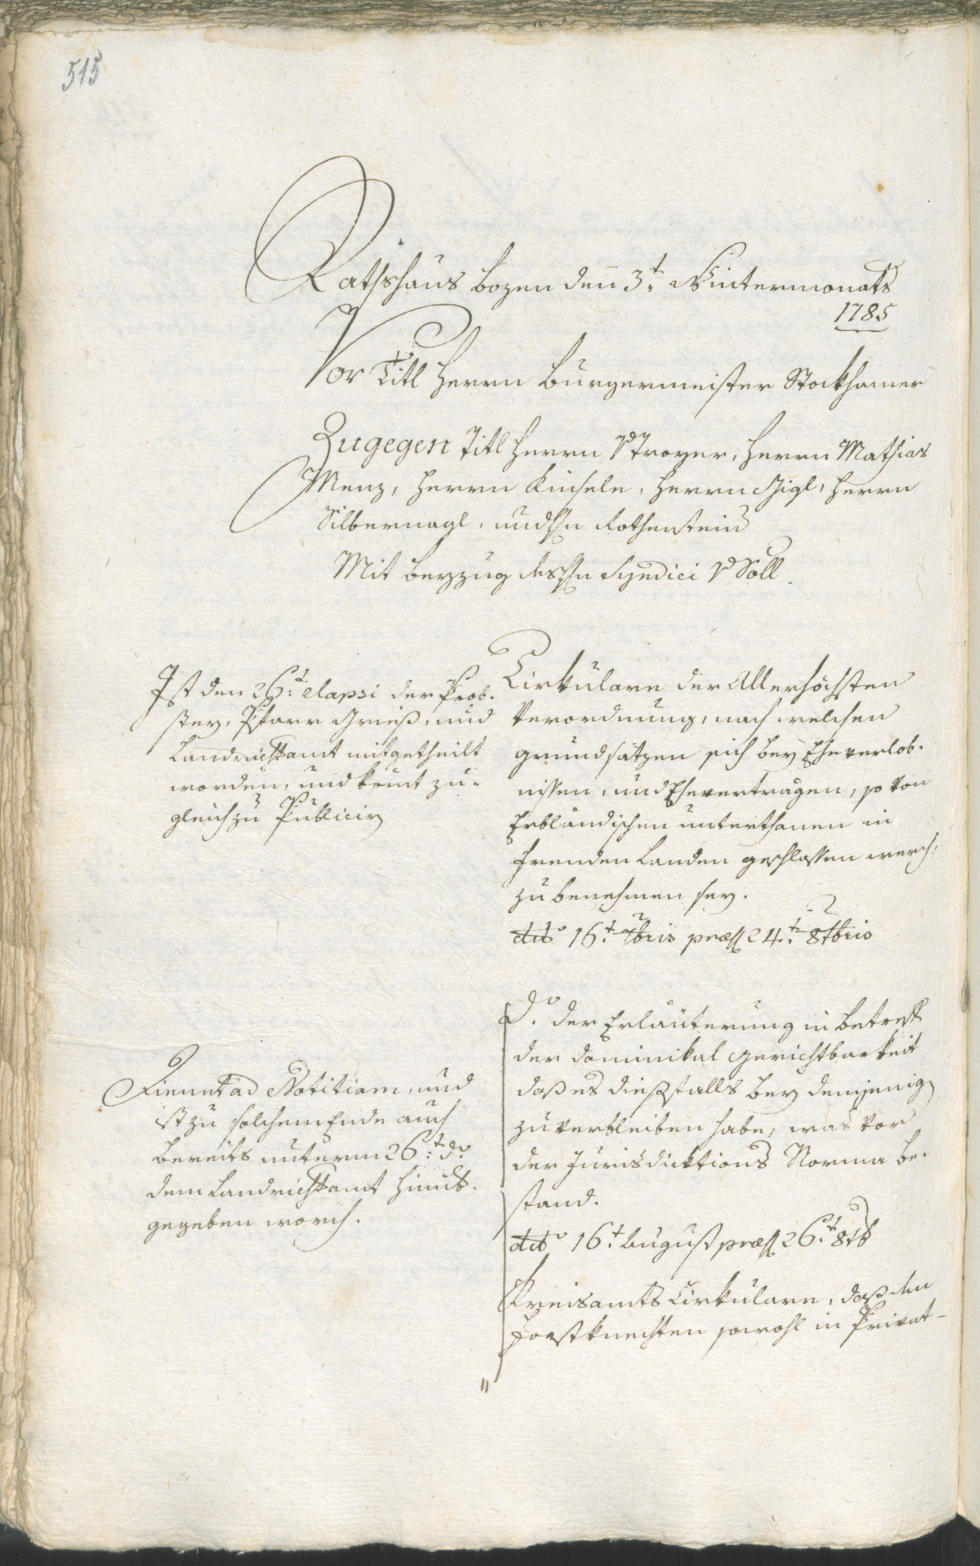 515
Rathshaus Bozen den 3t. Wintermonats
1785
Vor Titl Herrn Burgermeister Stockhamer
Zugegen Titl Herrn v Troyer, Herrn Mathias
Menz, Herrn Kinsele, Herrn Gigl, Herrn
Silbernagl, und Hn Rothenstein
Mit Beyzug des Hn Syndici v Söll.
Ist den 26t. elapsi der Prob-
stey, Pfarr Gries, und
Landrichtamt mitgetheilt
worden, und komt zu-
gleich zu Publicirn
Cirkulare der Allerhöchsten
Verordnung, nach welchen
grundsätzen sich bey Eheverlöb-
nissen, und Eheverträgen, so von
Erbländischen unterthanen in
fremden Landen geschlossen werden,
zu benehmen sey.
dto 16t. 7bris præs 24t. 8tbris
Dienet ad Notitiam, und
ist zu solchem Ende auch
bereits unterm 26t. do
dem Landrichtamt hinüb-
gegeben worden.
do. der Erläuterung in betreff
der Dominikal Gerichtbarkeit
daß es diesfalls bey demjenigen
zu verbleiben habe, was vor
der Jurisdicktions Norma be-
stand.
dto 16t. August præs 26t. 8tb
Kreisamts Cirkulare, daß den
Forstknechten sowohl in Privat-